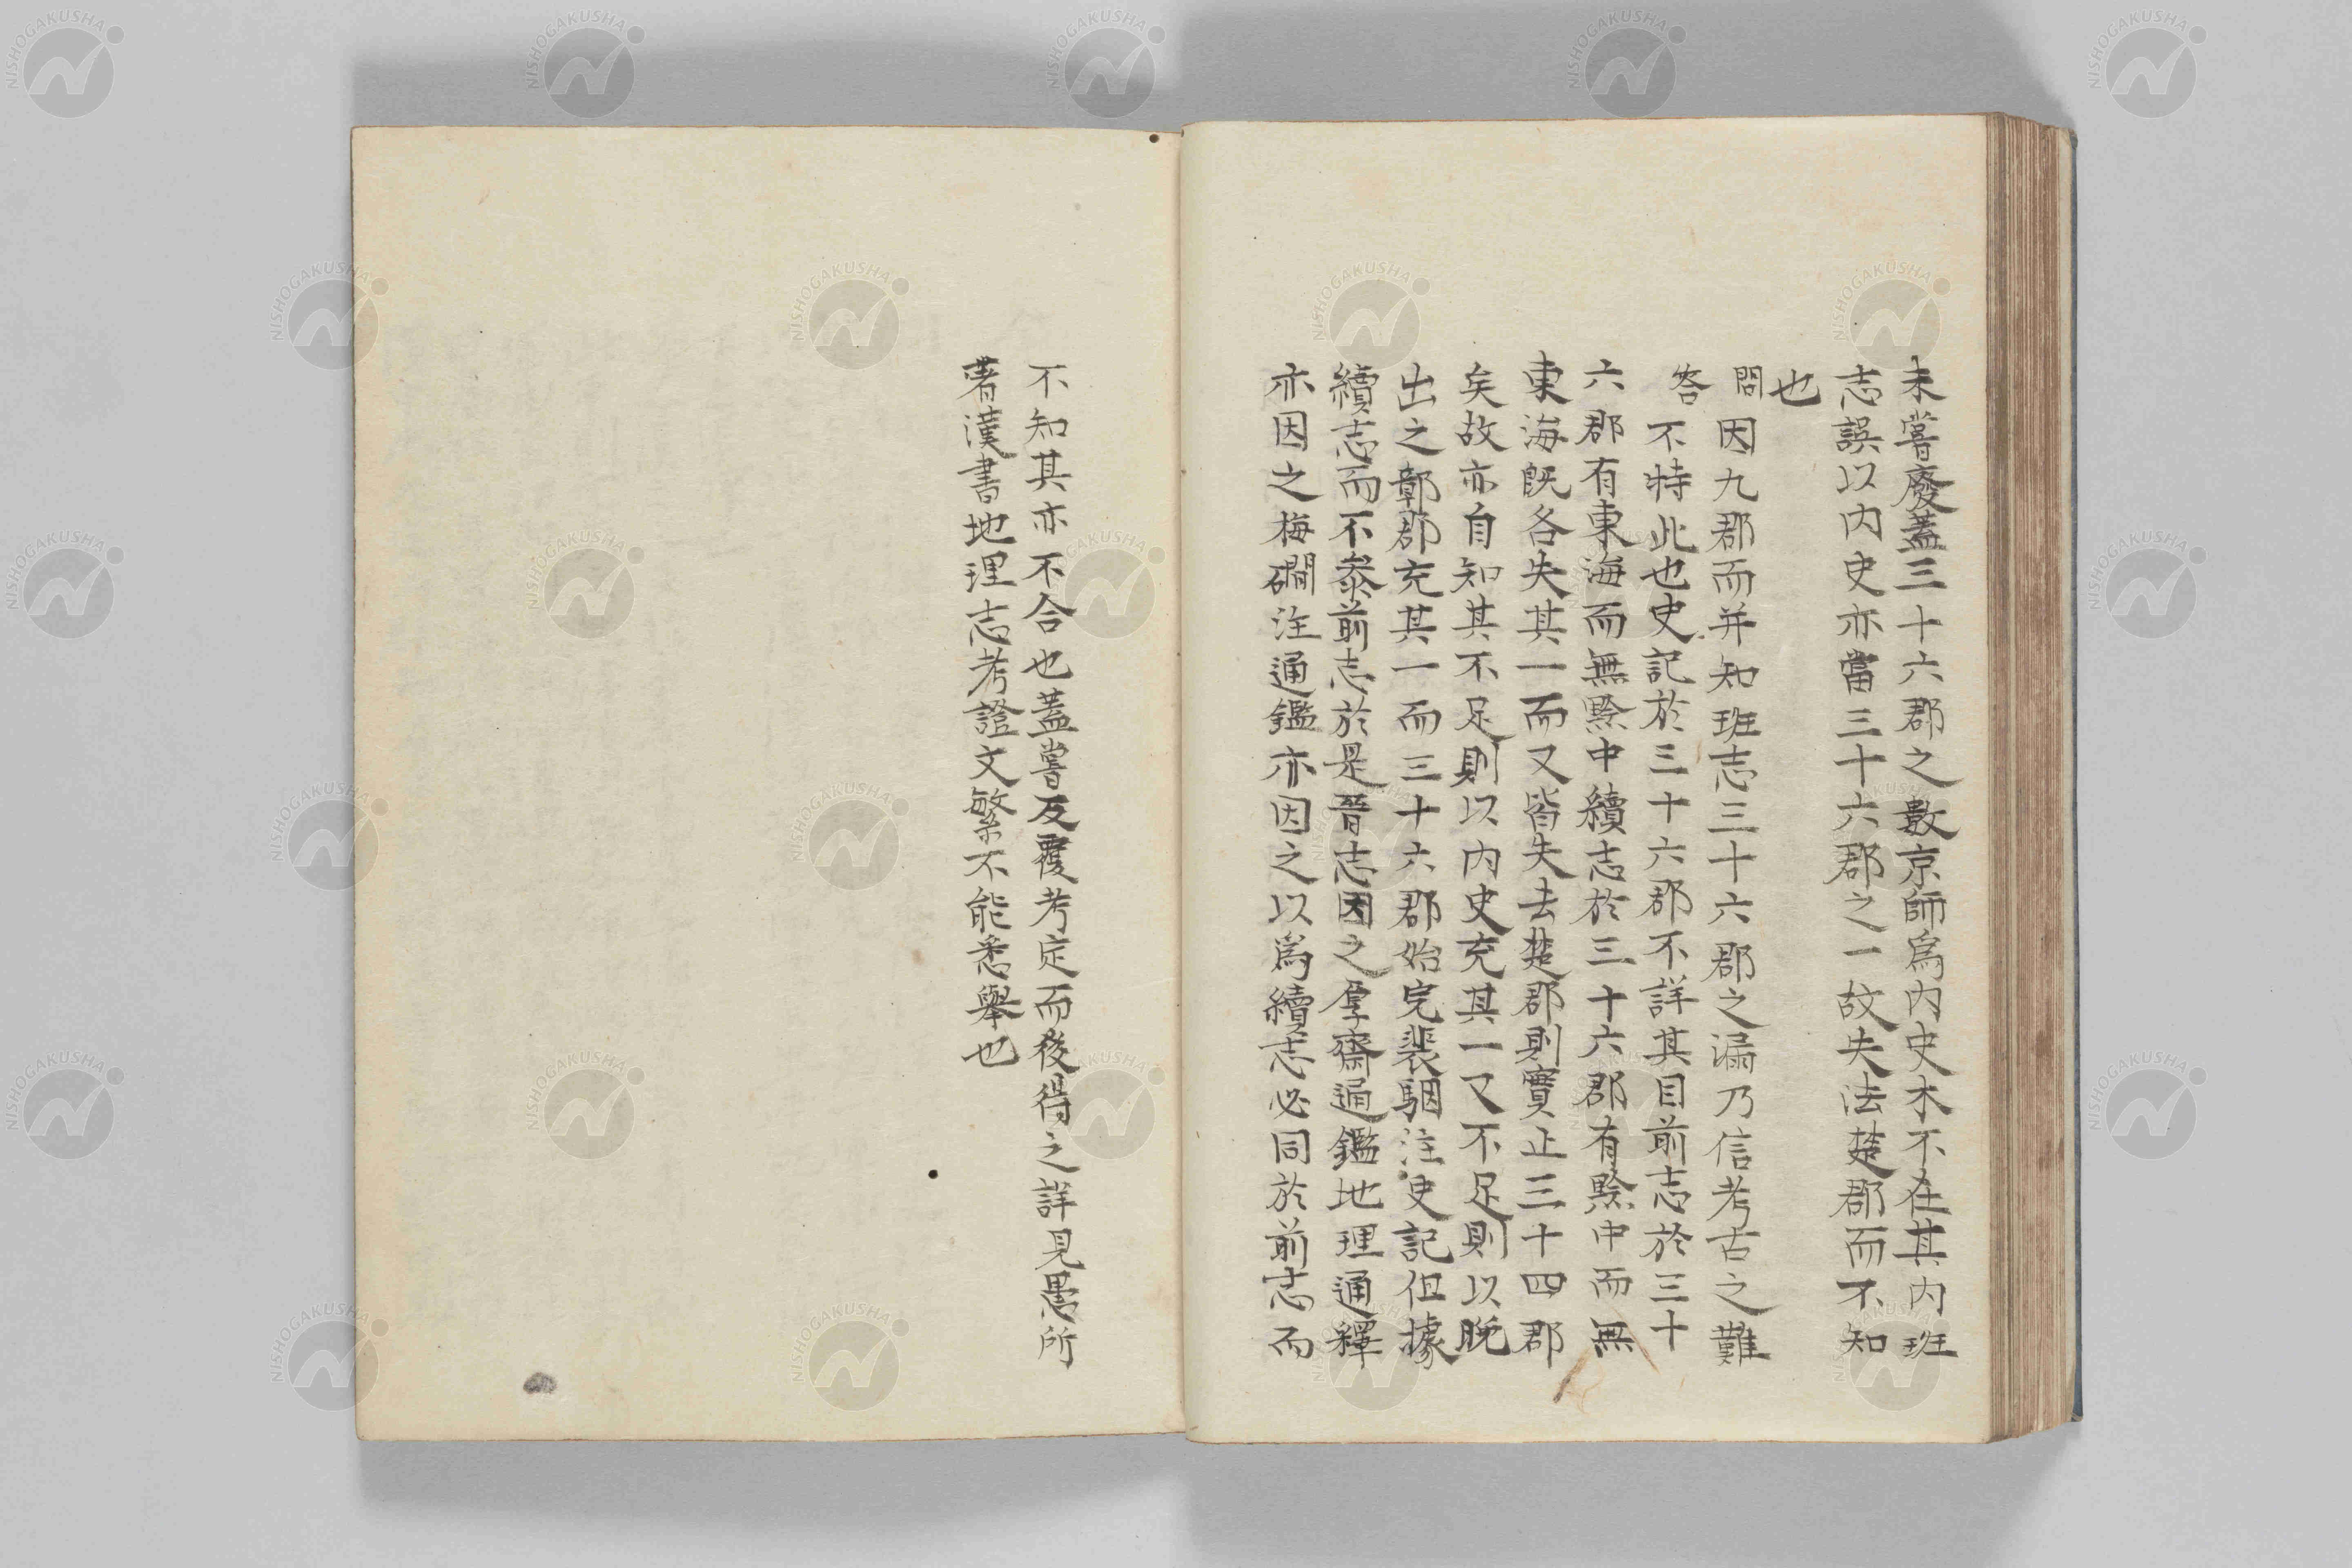 未嘗廢蓋三十六郡之數京師爲内史本不在其内班
志誤以内史亦當三十六郡之一故失法楚郡而不知
也
問因九郡而并知班志三十六郡之漏乃信考古之難
答不特此也史記於三十六郡不詳其目前志於三十
六郡有東海而無黔中續志於三十六郡有黔中而無
東海既各失其一而又皆失去楚郡則實止三十四郡
矣故亦自知其不足則以内史充其一又不足則以晚
出之鄣郡充其一而三十六郡始完裴駰注史記但據
續志而不叅前志於是晉志因之厚齋通鑑地理通釋
亦因之梅磵注通鑑亦因之以爲續志必同於前志而
不知其亦不合也蓋嘗反覆考定而後得之詳見愚所
著漢書地理志考證文繁不能悉舉也
NISHOGAKUSHA